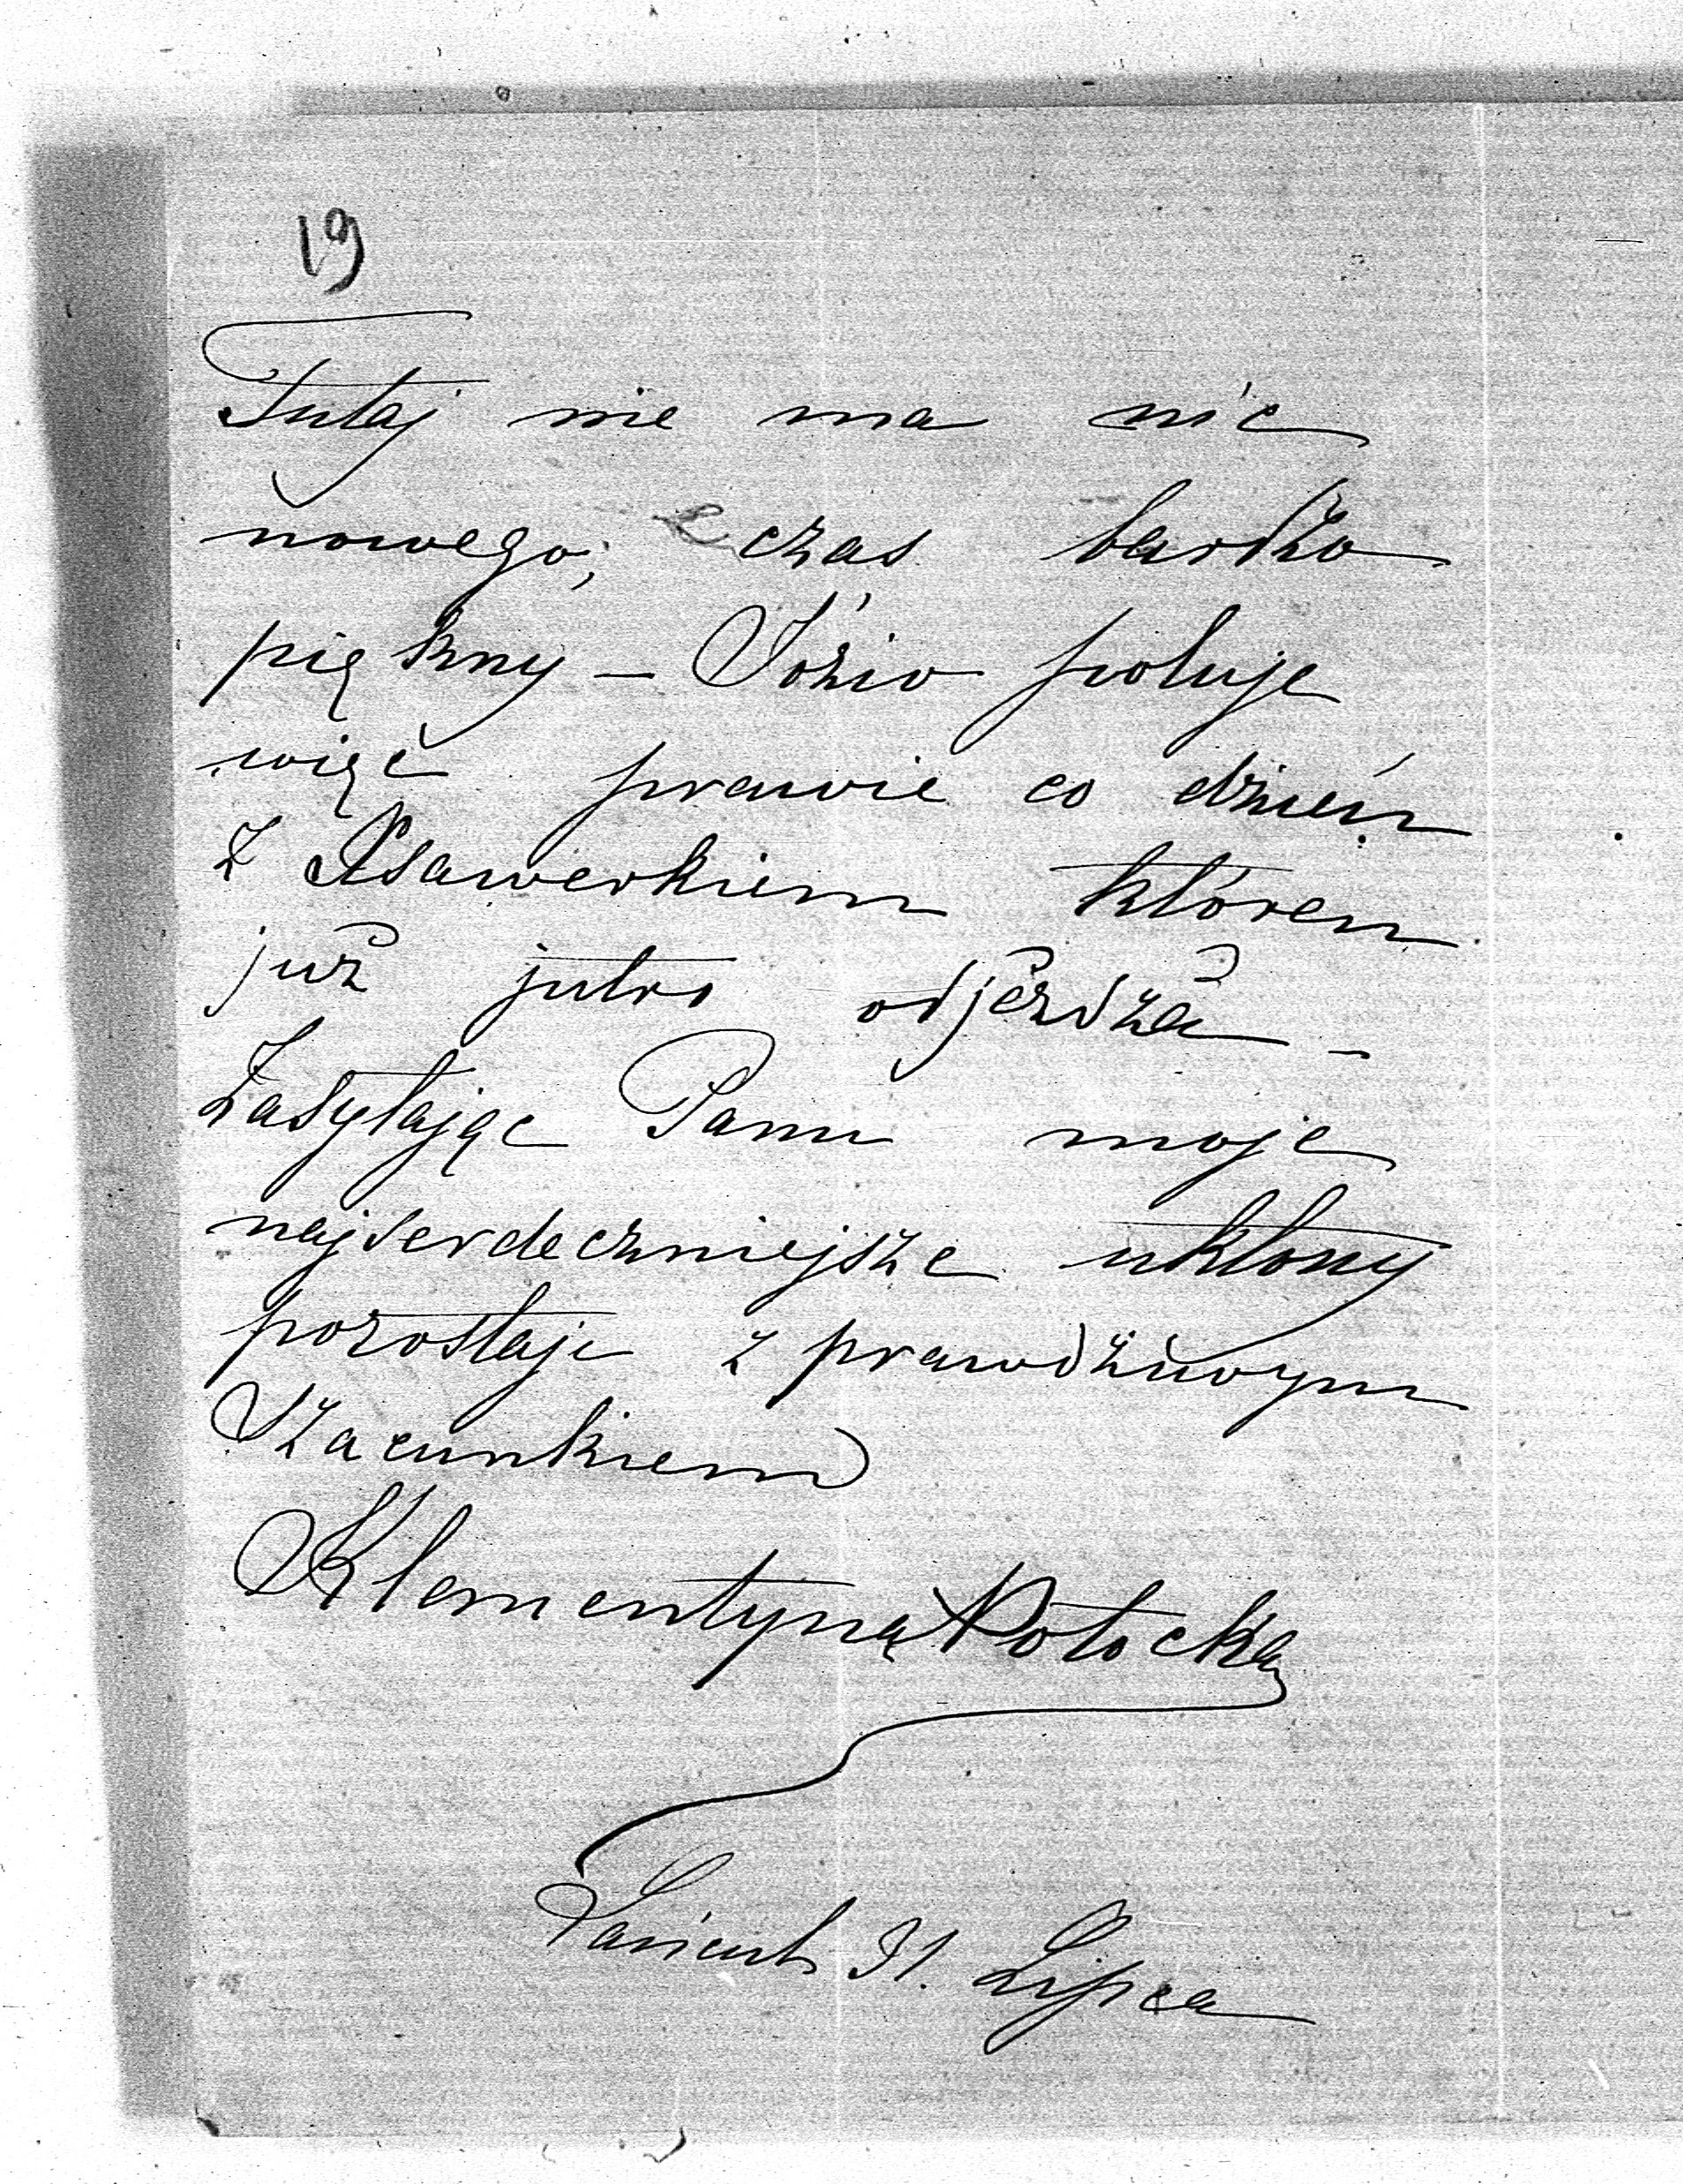 19
Tutaj nie ma nic
nowego; czas bardzo
piękny – Józio poluje
więc prawie co dzień
z Ksawerkiem któren
już jutro odjeżdża –
Zasyłając Panu moje
najserdeczniejsze ukłony
pozostaję z prawdziwym
Szacunkiem
Klementyna Potocka
Łańcut 31. Lipca